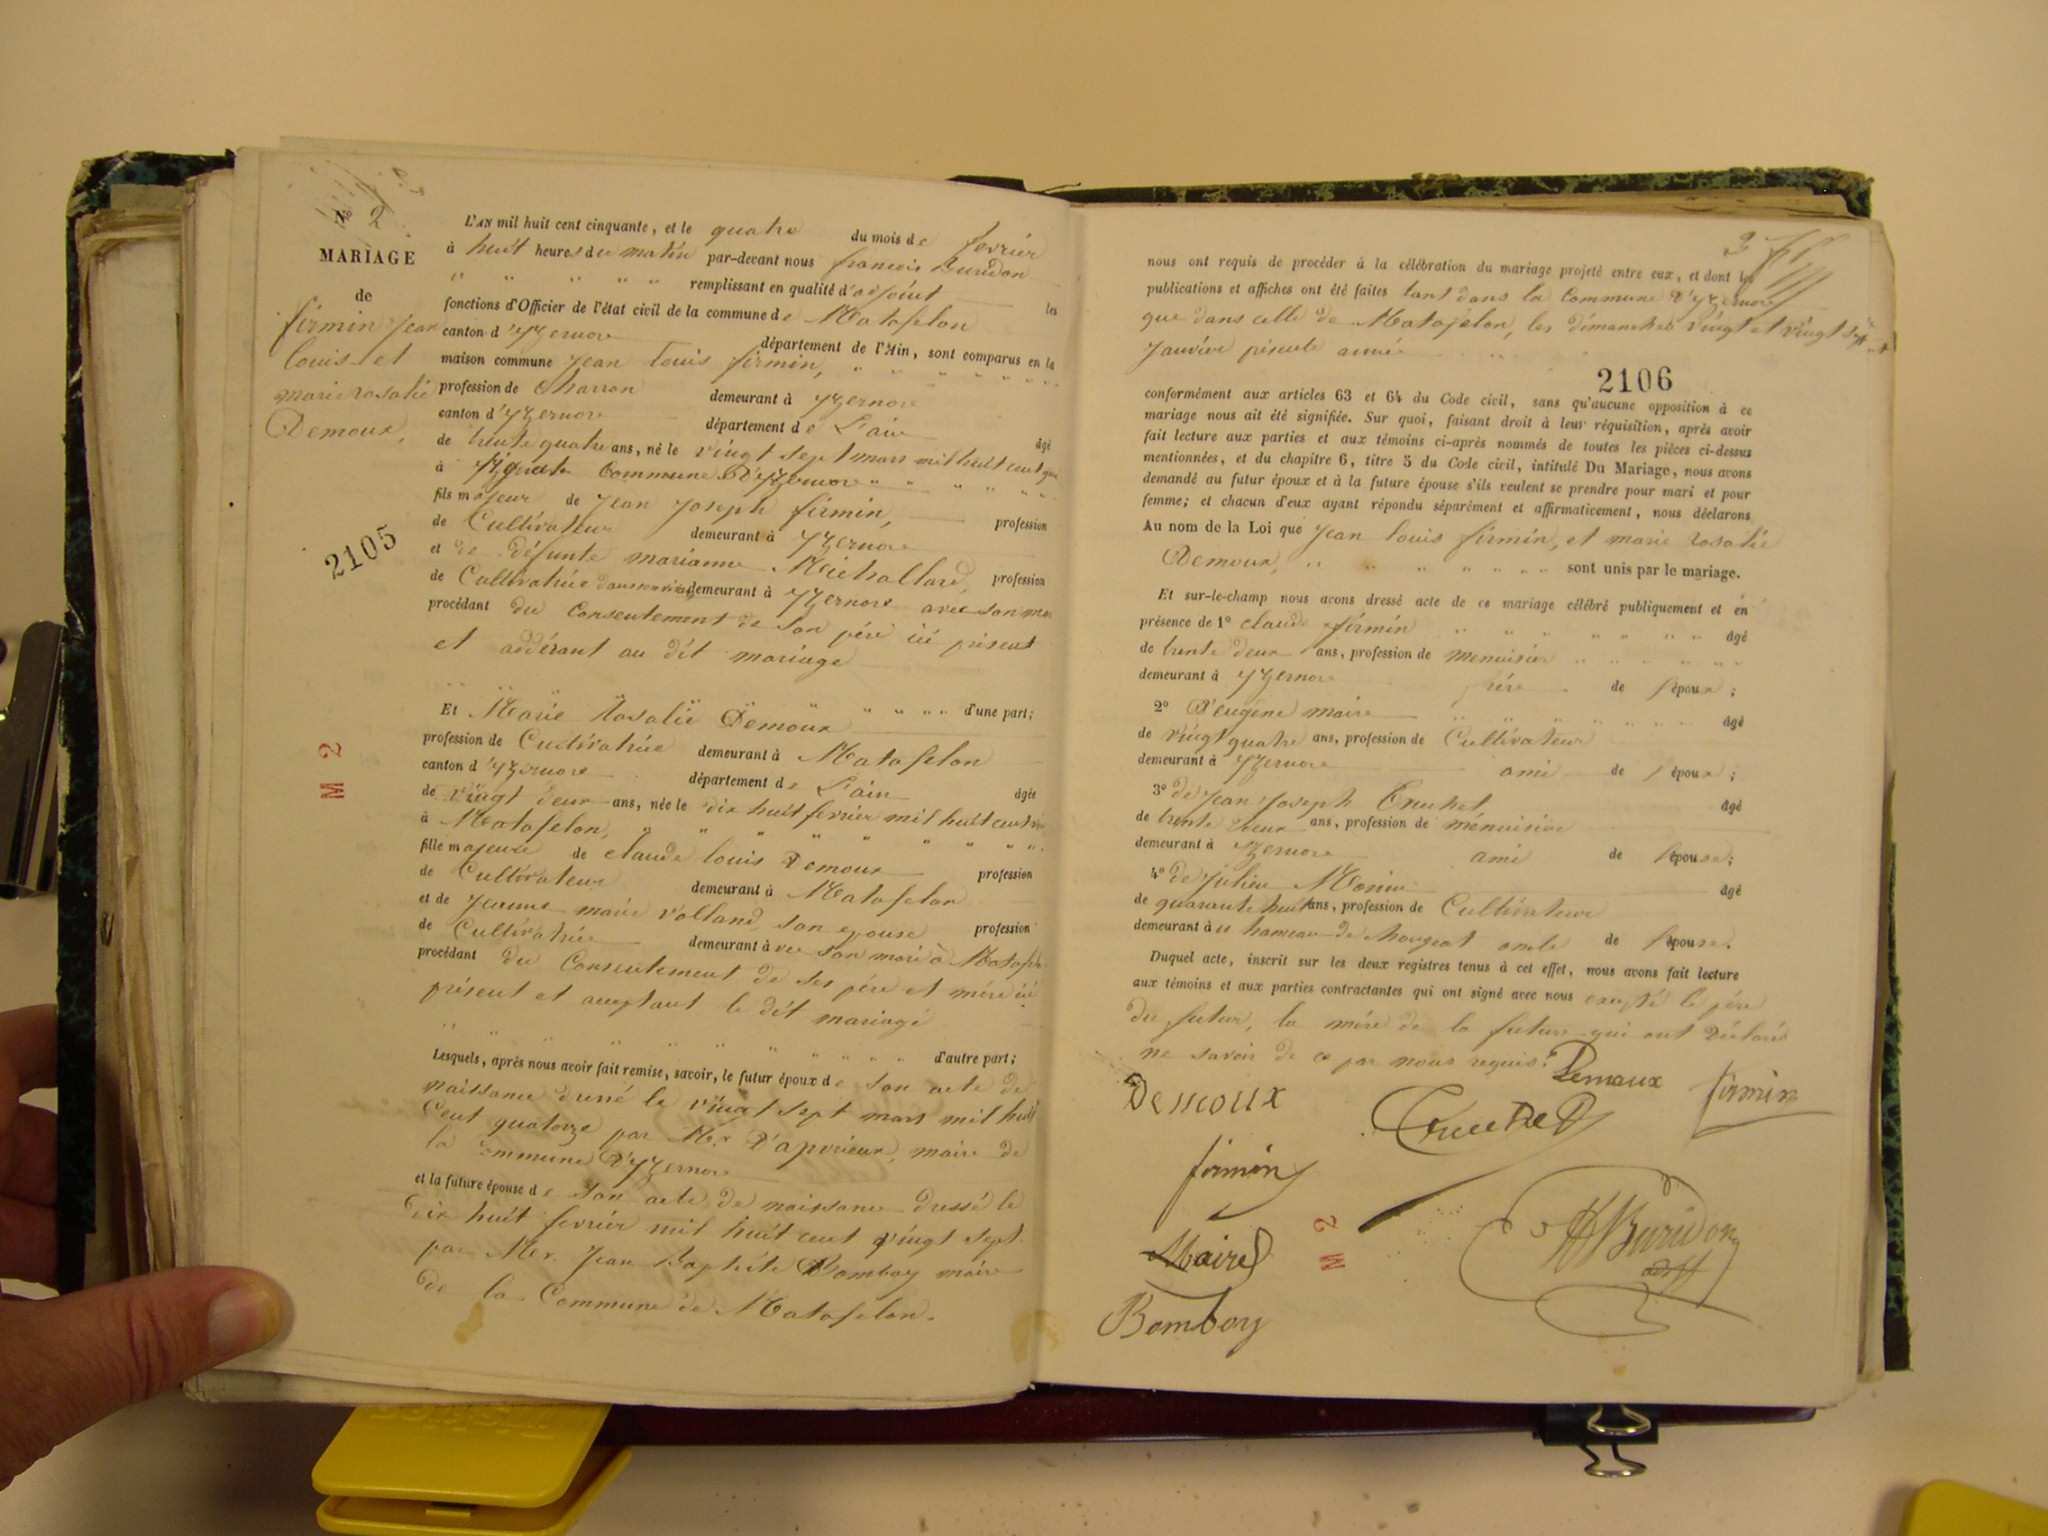 N° 2
MARIAGE
de
firmin jean
louis et
marie rosalie
Demoux,
2105
M 2
L'AN mil huit cent cinquante, et le quatre du mois de fevrier
à huit heures du matin par-devant nous francois Buridon
" " " " " remplissant en qualité d'adjoint les
fonctions d'Officier de l'état civil de la commune de Matafelon
canton d'yzernore département de l'Ain, sont comparus en la
maison commune jean louis firmin, " " " " " " "
profession de Charron demeurant à yzernore
canton d'yzernore département de L'ain âgé
de trente quatre ans, né le vingt sept mars mil huit cent
à commune D'yzernore " " " " " "
fils majeur de jean joseph firmin, profession
de Cultivateur demeurant à yzernore
et de défunte marianne Michallard, profession
de Cultivatrice demeurant à yzernore avec son
procédant du Consentement de son père ici présent
et adérant au dit mariage
Et Marie Rosalie Demoux " " " " d'une part;
profession de Cultivatrice demeurant à Matafelon
canton d'yzernore département de L'ain âgée
de vingt deux ans, née le dix huit fevrier mil huit cent
à Matafelon, " " " " " " " "
fille majeure de claude louis Demoux profession
de Cultivateur demeurant à Matafelon
et de jeanne marie volland, son epouse profession
de Cultivatrice demeurant avec son mari à
procédant du Consentement de ses père et mère ici
présent et acceptant le dit mariage
" " " " " " " " " d'autre part;
Lesquels, après nous avoir fait remise, savoir, le futur époux de son acte de
naissance dressé le vingt sept mars mil huit
Cent quatorze par Mr. maire de
la commune D'yzernore
et la future épouse de son acte de naissance dressé le
dix huit fevrier mil huit cent vingt sept
par Mr. Jean Baptiste Bomboy maire
de la Commune de Matafelon.
nous ont requis de procéder à la célébration du mariage projeté entre eux, et dont les
publications et affiches ont été faites tant dans la Commune D'yzernore
que dans celle de Matafelon, les dimanches vingt et vingt sept
janvier présente année
2106
conformément aux articles 63 et 64 du Code civil, sans qu'aucune opposition à ce
mariage nous ait été signifiée. Sur quoi, faisant droit à leur réquisition, après avoir
fait lecture aux parties et aux témoins ci-après nommés de toutes les pièces ci-dessus
mentionnées, et du chapitre 6, titre 5 du Code civil, intitulé Du Mariage, nous avons
demandé au futur époux et à la future épouse s'ils veulent se prendre pour mari et pour
femme; et chacun d'eux ayant répondu séparément et affirmativement, nous déclarons
Au nom de la Loi que jean louis firmin, et marie rosalie
Demoux, " " " " " " " sont unis par le mariage.
Et sur-le-champ nous avons dressé acte de ce mariage célébré publiquement et en
présence de 1° claude firmin " " " " " " " âgé
de trente deux ans, profession de menuisier " " " " " "
demeurant à yzernore frère de l'époux;
2° D'eugene maire " " " " " " âgé
de vingt quatre ans, profession de Cultivateur
demeurant à yzernore ami de l'époux;
3° de jean joseph Cruchet âgé
de trente deux ans, profession de ménuisier
demeurant à yzernore ami de l'épouse;
4° de julien âgé
de quarante huit ans, profession de Cultivateur
demeurant au hameau de oncle de l'épouse.
Duquel acte, inscrit sur les deux registres tenus à cet effet, nous avons fait lecture
aux témoins et aux parties contractantes qui ont signé avec nous excepté le père
du futur, la mère de la future qui ont déclarés
ne savoir de ce par nous requis.
Demoux firmin
Demoux
Cruchet
firmin
Buridon
adjt
M 2
Maire
Bomboy